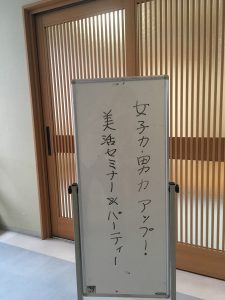 女子力・男力アップ！
美活セミナー&パーティー